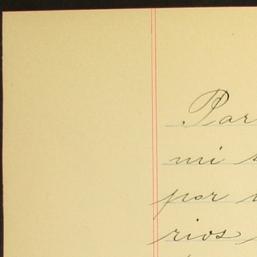 Par
mi
por
rios